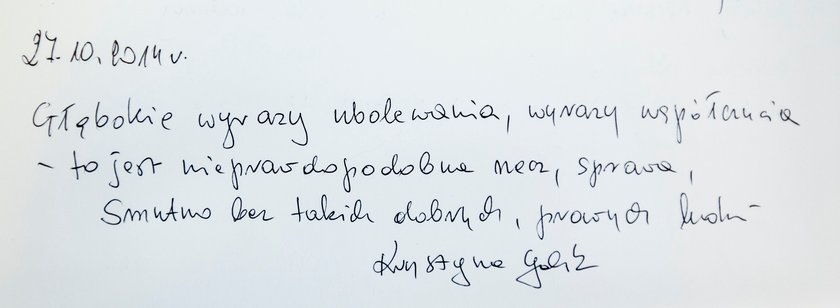 27.10.2014 r.
Głębokie wyrazy ubolewania, wyrazy współczucia
- to jest nieprawdopodobna rzecz, sprawa,
Smutno bez takich dobrych, prawych ludzi -
Krystyna